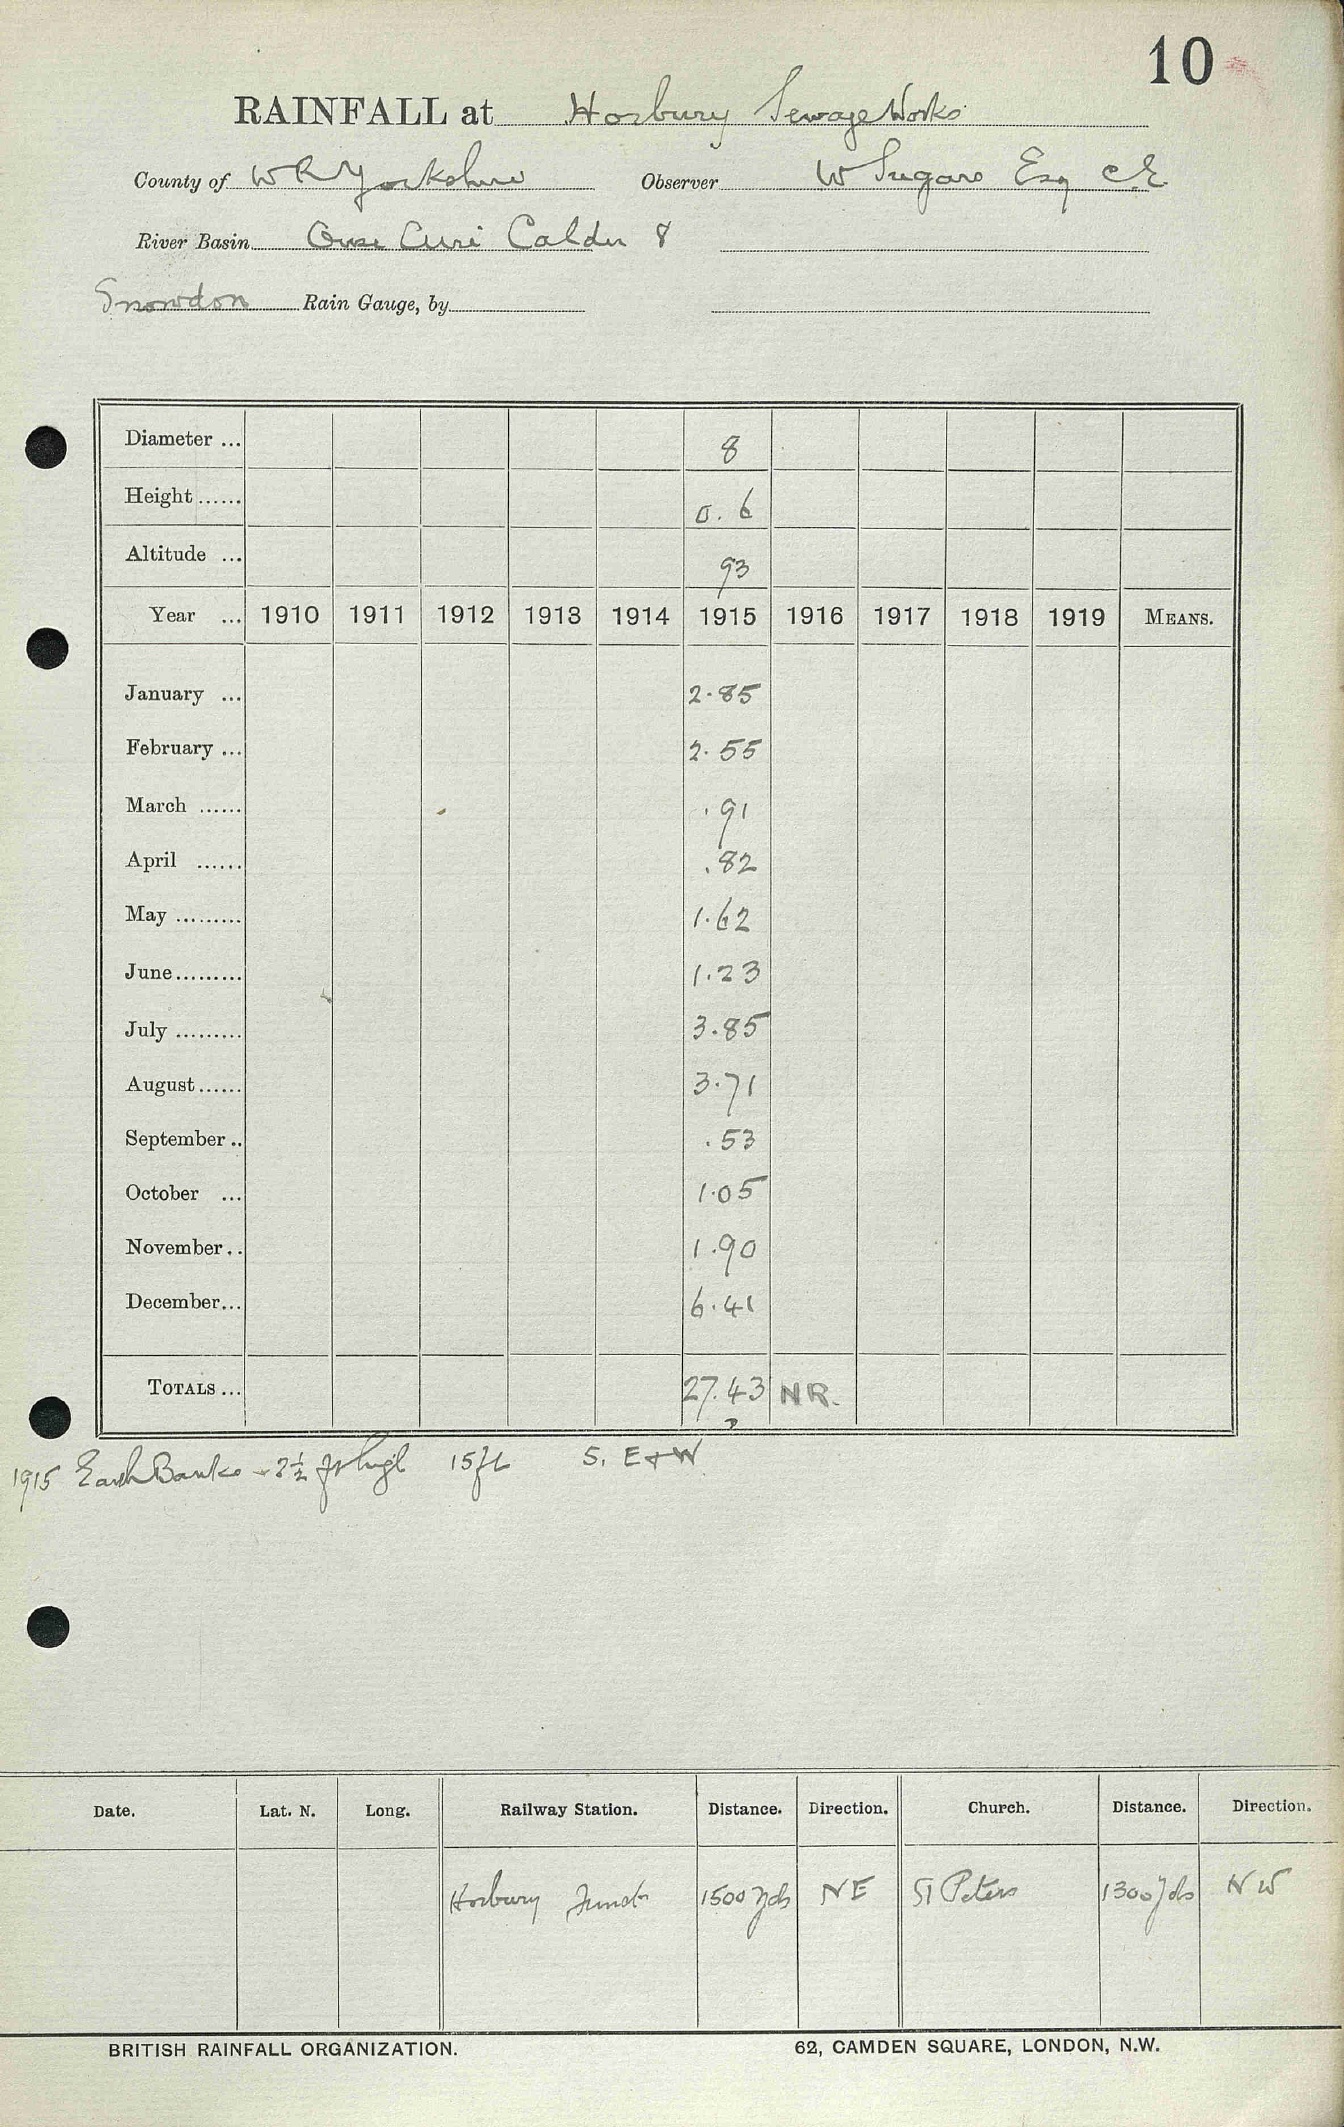 10
RAINFALL at Horbury Sewage Works
County of W R Yorkshire Observer W Sugars Esq C.E
River Basin Ouse Aire Calder 8
Snowdon Rain Gauge, by
Diameter ... 8
Height...... 0.6
Altitude ... 93
Year ... 1910 1911 1912 1913 1914 1915 1916 1917 1918 1919 MEANS.
January ... 2.85
February ... 2.55
March ...... .91
April ...... .82
May ......... 1.62
June......... 1.23
July ......... 3.85
August...... 3.71
September .. .53
October ... 1.05
November.. 1.90
December... 6.41
TOTALS ... 27.43 NR.
?
1915 Earth Banks - 2½ ft high 15ft S. E + W
Date. Lat. N. Long. Railway Station. Distance. Direction. Church. Distance. Direction.
Horbury Junct 1500 yds NE St Peters 1300 yds NW
BRITISH RAINFALL ORGANIZATION. 62, CAMDEN SQUARE, LONDON, N.W.